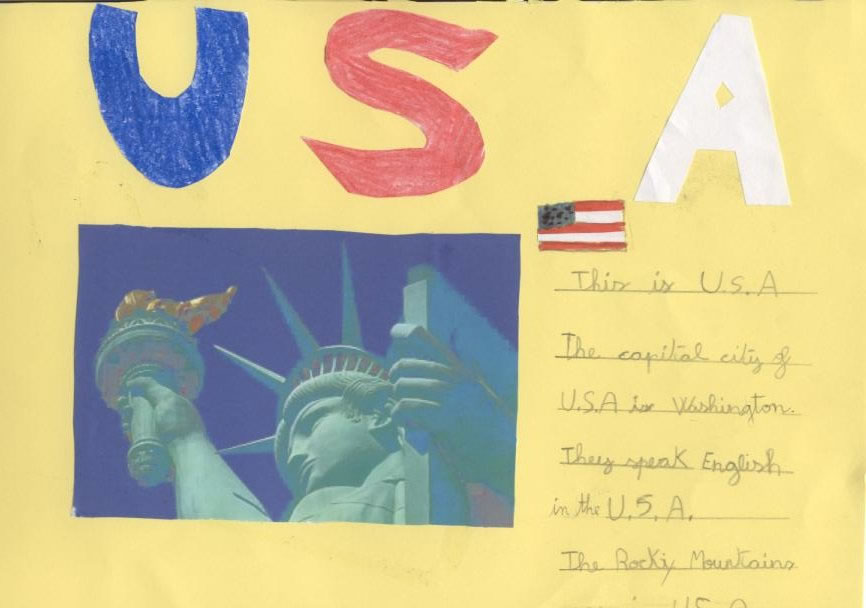 USA
This is U.S.A
The capital city of
U.S.A is Washington.
They speak English
in the U.S.A.
The Rocky Mountains
U.S.A